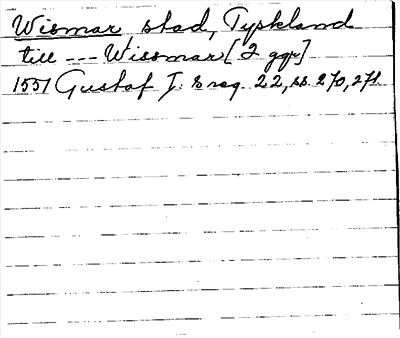 Wismar stad, Tyskland
till --- Wissmar [2 ggr]
1551 Gustaf I: s reg. 22, ss. 270, 271.